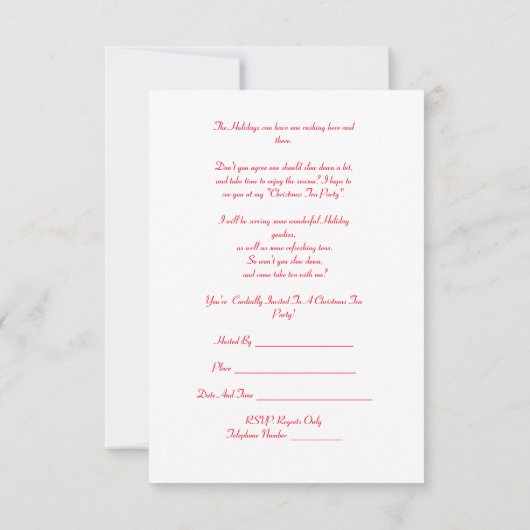 The Holidays can have one rushing here and
there.
Don't you agree one should slow down a bit,
and take time to enjoy the season? I hope to
see you at my "Christmas Tea Party".
I will be serving some wonderful Holiday
goodies,
as well as some refreshing teas.
So won't you slow down,
and come take tea with me?
You're Cordially Invited To A Christmas Tea
Party!
Hosted By ____________________
Place _________________________
Date And Time ________________________
RSVP, Regrets Only
Telephone Number ___________